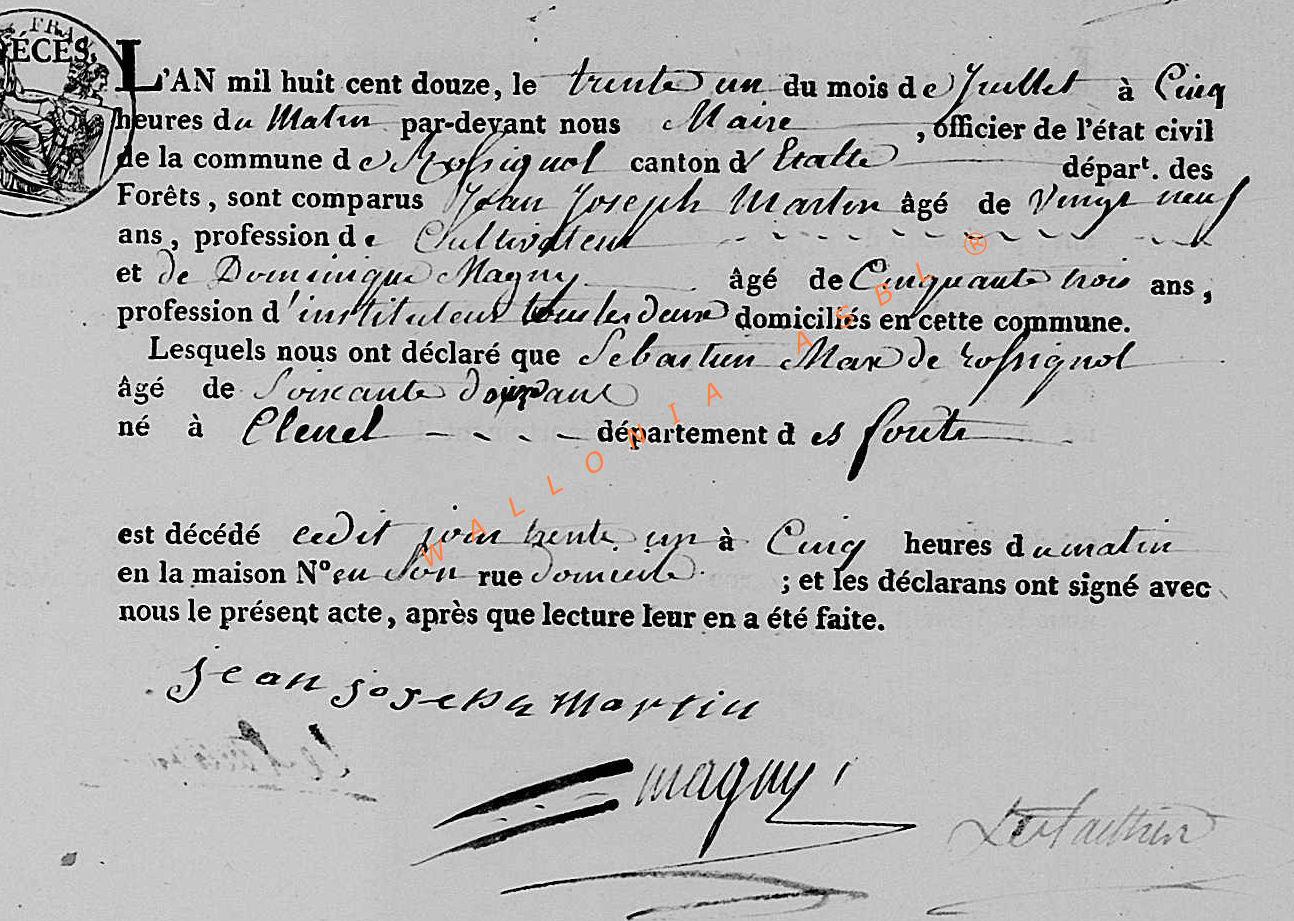 FRA
ÉCÈS.
L'AN mil huit cent douze, le trente un du mois de Juillet à Cinq
heures du Matin par-devant nous Maire , officier de l'état civil
de la commune de Rossignol canton d'Etalle départ. des
Forêts, sont comparus Jean Joseph Martin âgé de Vingt neuf
ans, profession de Cultivateur
et de Dominique Magny âgé de Cinquante trois ans,
profession d'instituteur tous les deux domiciliés en cette commune.
Lesquels nous ont déclaré que Sebastien Max de rossignol
âgé de Soixante ans
né à département des forêts
est décédé cedit jour trente un à Cinq heures du matin
en la maison N° en Son rue domicile ; et les déclarans ont signé avec
nous le présent acte, après que lecture leur en a été faite.
jean joseph martin
magny
WALLONIA ASBL ®